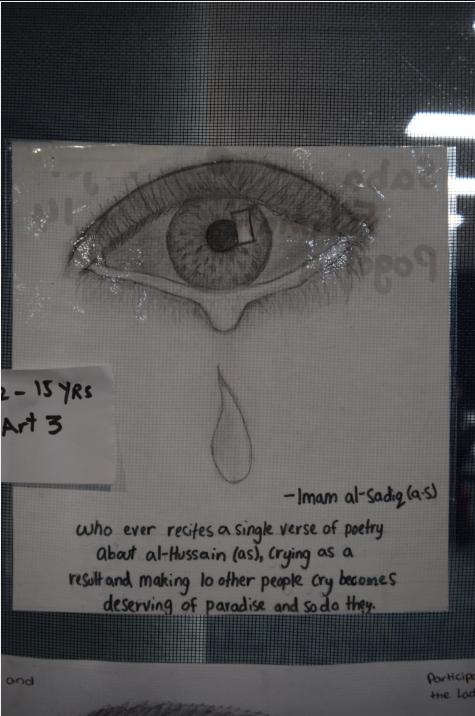 2-15 YRS
Art 3
-Imam al-Sadiq (a.s)
who ever recites a single verse of poetry
about al-Hussain (as), crying as a
result and making 10 other people cry becomes
deserving of paradise and so do they.
and
the